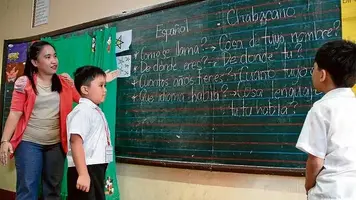 Español Chabacano
¿Como se llama? → Cosa di tuyo nombre?
¿De donde eres? → De donde tu?
¿Cuantos años tienes? → Cuanto tuyo
¿Que idioma habla? → Cosa lenguaje
tu ta habla?